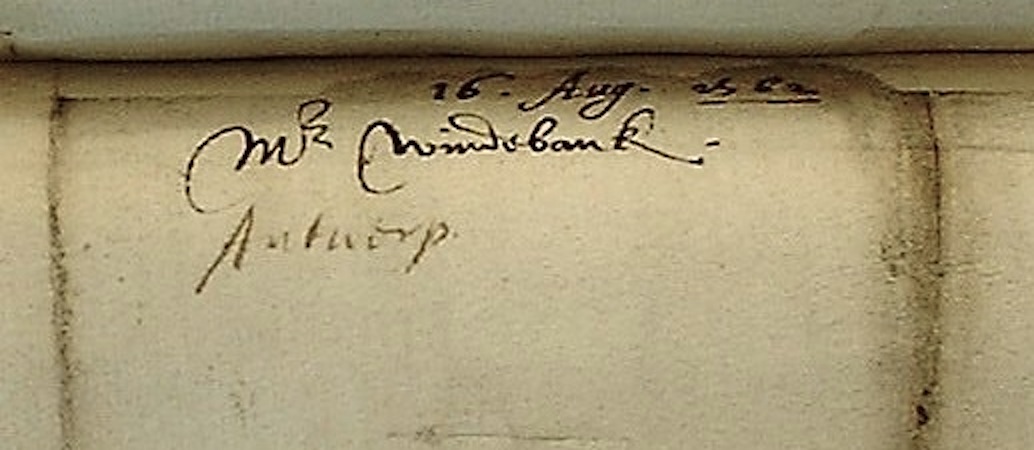 16. Aug. 1562
Mr Windebank.
Antwerp.